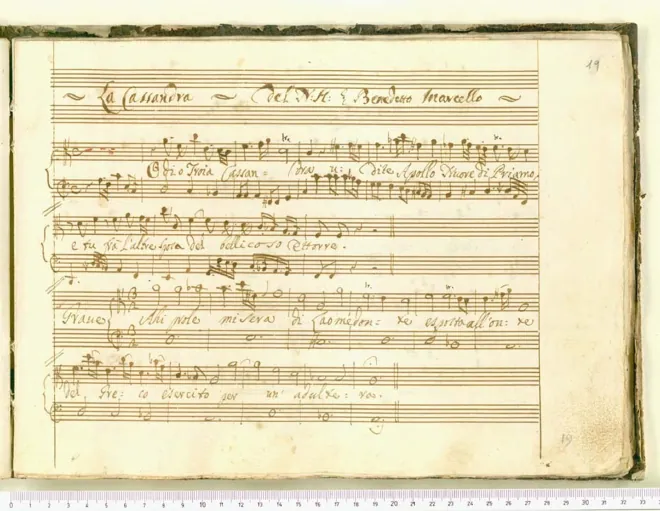 19
La Cassandra Del N. H. Benedetto Marcello
Odi o Troia Cassan= dra u= dite Apollo Priamo,
e tu del bellicoso Ettorre.
Graue Ahi prole misera di Laomedon= te esposta all'on= te
del Gre= co esercito per un' adulte= ro.
0 1 2 3 4 5 6 7 8 9 10 11 12 13 14 15 16 17 18 19 20 21 22 23 24 25 26 27 28 29 30 31 32 33